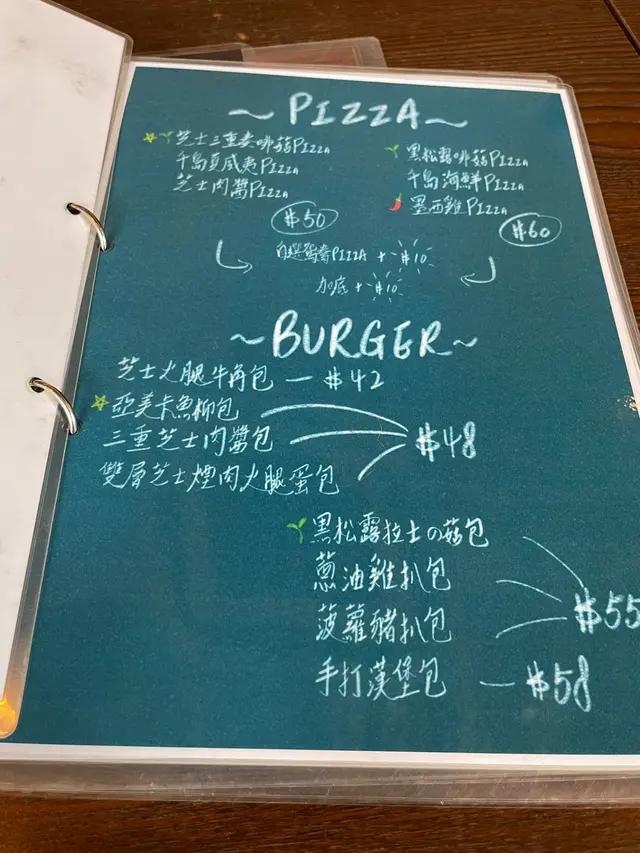 ~PIZZA~
芝士三重奏啡菇PIZZA
千島夏威夷PIZZA
芝士肉醬PIZZA
$50
黑松露啡菇PIZZA
千島海鮮PIZZA
墨西雞PIZZA
$60
自選鴛鴦PIZZA + $10
加底 + $10
~BURGER~
芝士火腿牛角包 — $42
亞美卡魚柳包
三重芝士肉醬包
雙層芝士煙肉火腿蛋包
$48
黑松露拉士の菇包
蔥油雞扒包
菠蘿豬扒包
$55
手打漢堡包 — $58